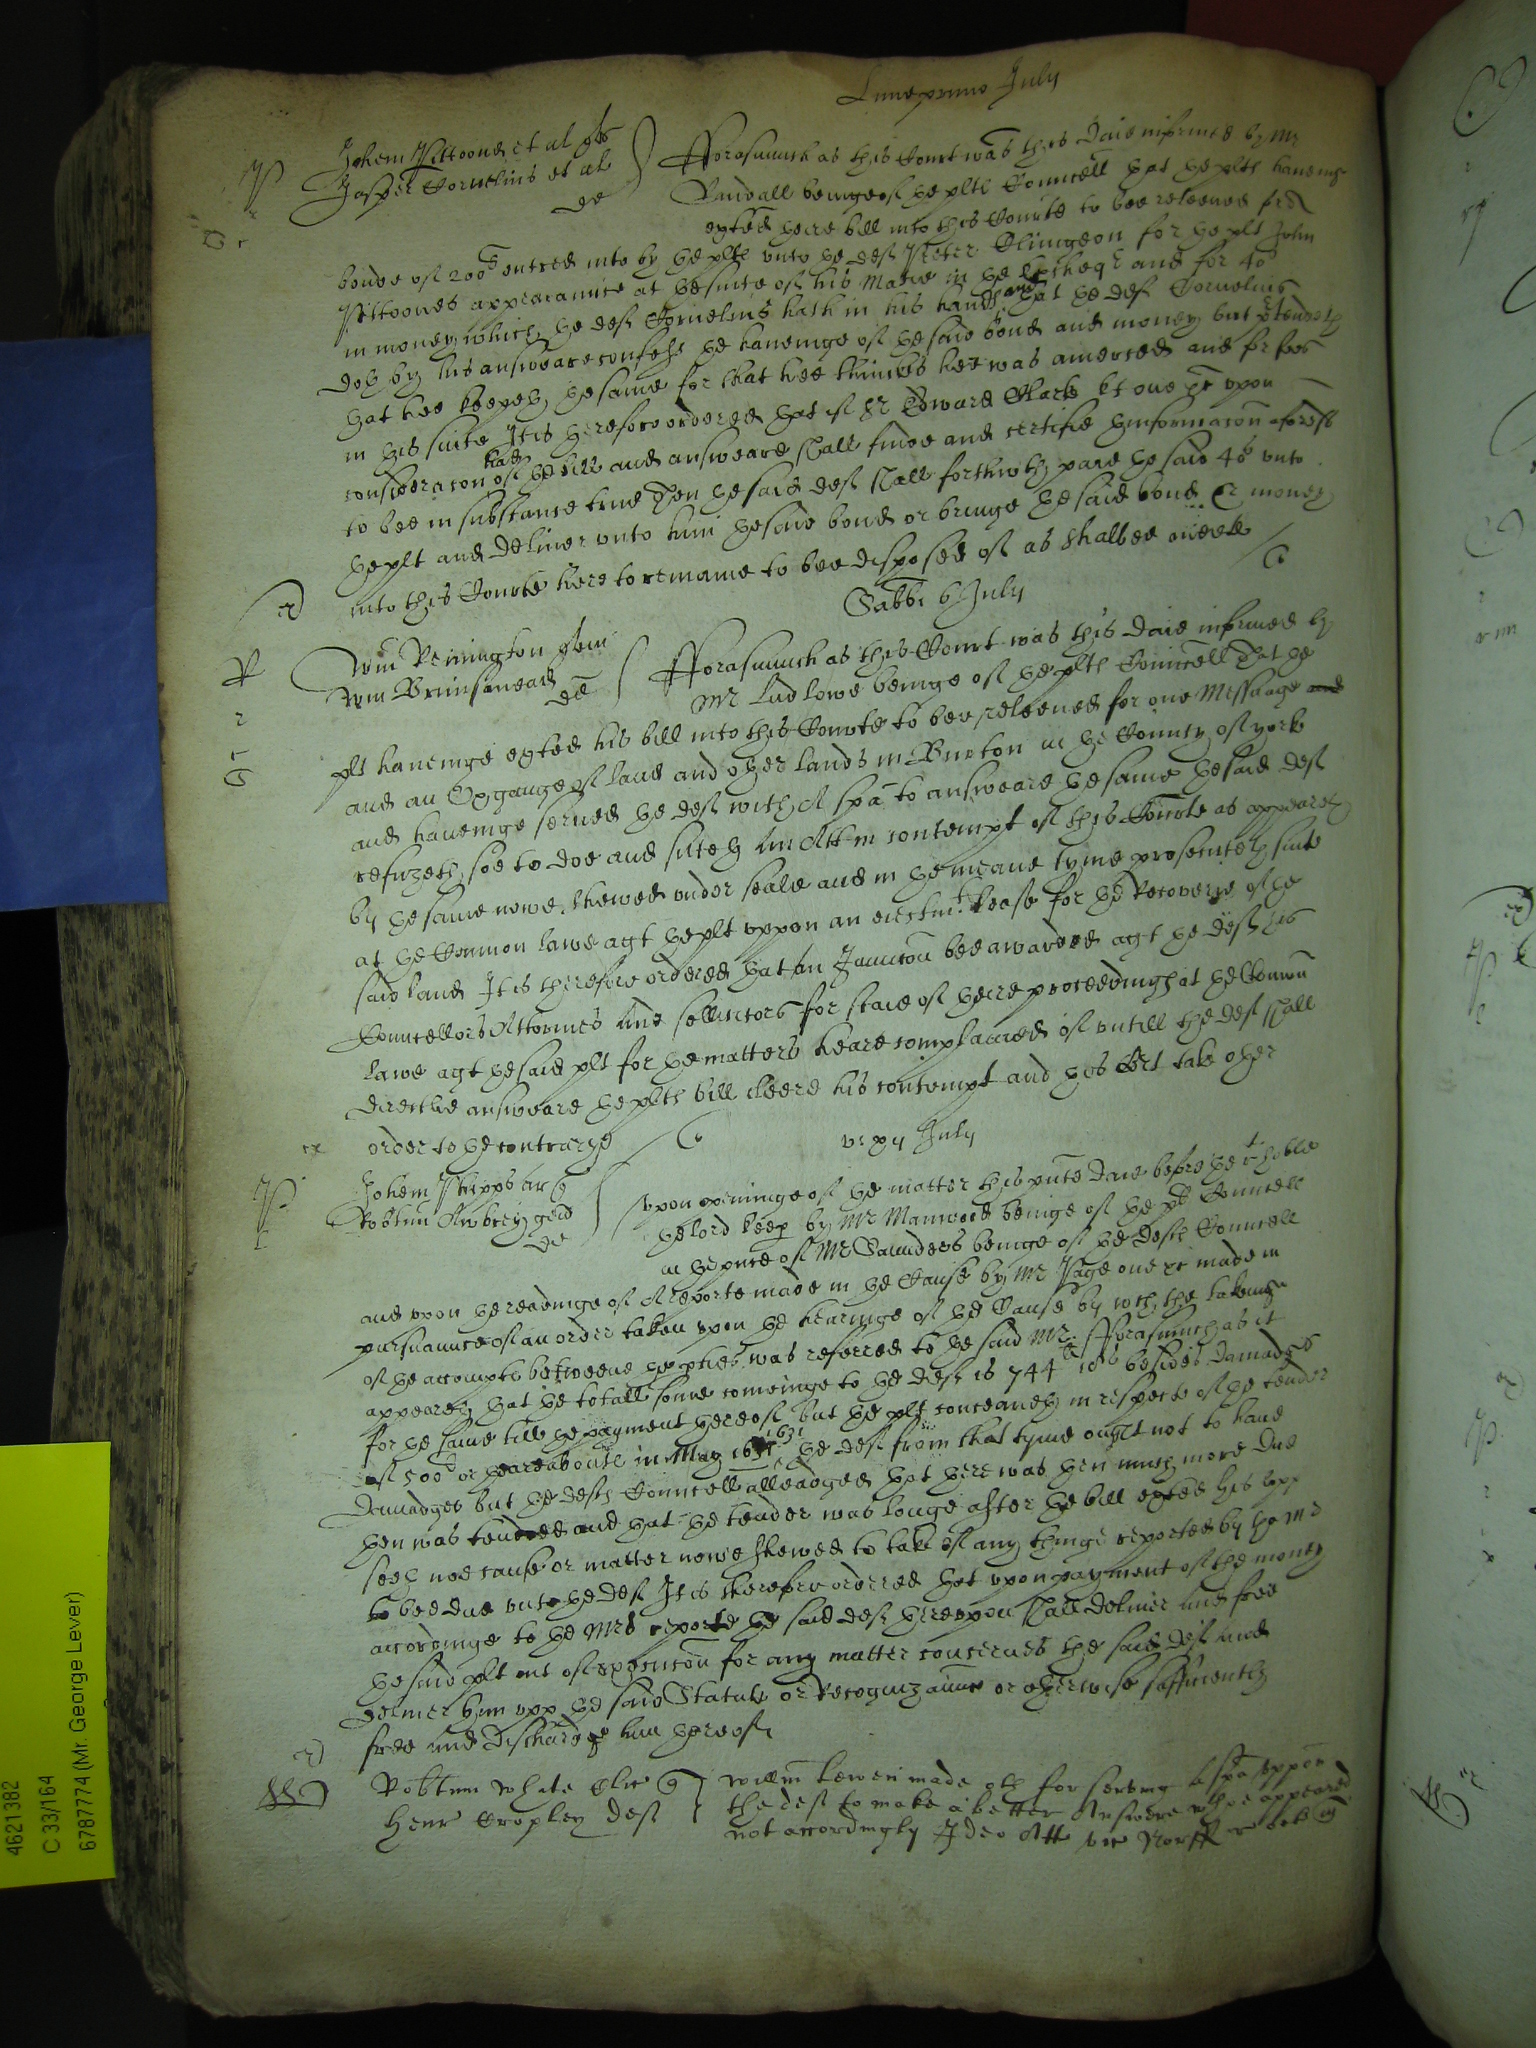 Lune primo July
Johem Pittoone et al plts
Jasper Cornelius et al
def
fforasmuch as this Court was this daie informed by Mr
Randall beinge of ye plts Councell yat ye plts haveinge
exhibited yeire bill into this Courte to bee releeved for a
bonde of 200l entred into by ye plts unto ye def Peter for ye plt John
Pittoones appearannce at ye suite of his Matie in ye Excheqr and for 40s
in money which ye def Cornelius hath in his hands and yat ye def Cornelius
doth by his answeare confesse ye haveinge of ye said bond and money but pretendeth
yat hee keepeth ye same for that hee thinks hee was amerced and for fees
in his suite It is yerefore ordered yat if Sr Edward Clark kt one &c upon
consideracon of ye bill and answeare shall finde and certifie yinformacon aforesd
to bee in substance true Then ye said def shall forthwth paie ye said 40s unto
ye plt and deliver unto him ye said bond or bringe ye said bond & money
into this Courte here to remaine to bee disposed of as shalbee meete
Sabbi 6 July
Wm Remington plt
Wm Brimstonead
def
fforasmuch as this Court was this daie informed by
Mr Ludlowe beinge of ye plts Councell That ye
plt haveinge exhibited his bill into this Courte to bee releeved for one Messuage and
and an Oxgange of land and other lands in Burton in ye County of yorke
and haveinge served ye def with A spa to answeare ye same ye said def
refuzeth soe to doe and sitteth an Att in contempt of this Courte as appeareth
by ye same nowe shewed under seale and in ye meane tyme prosecuteth suite
at ye Common lawe agt ye plt uppon an eiectmt lease for ye Recoverie of ye
said land It is therefore ordered yat an Iniuncon bee awarded agt ye def his
Councellors Attornies and sollicitors for staie of yeire proceedings at ye Comon
lawe agt ye said plt for ye matters heare complained of untill the def shall
directlie answeare ye plts bill cleere his contempt and this Cort take other
order to ye contrarye
xij July
Johem Phipps ar
Robtum Awbrey gen
def
Upon openinge of ye matter this pnte daie before ye right hoble
ye lord keeper by Mr Manwood beinge of ye plts Councell
in ye pnce of Mr Saunders beinge of ye defts Councell
and upon ye readinge of A reporte made in ye Cause by Mr Page one &c made in
pursuannce of an order taken upon ye hearinge of ye Cause by wch the takinge
of ye accompts betweene ye pties was referred to ye said Mr fforasmuch as it
appeareth yat ye totall some cominge to ye def is 744l 10s besides damadges
for ye same till ye payment yereof but ye plt conceaveth in respecte of ye tender
of 500l or yereabouts in May 1631 ye def from that tyme ought not to have
Damadges but ye defts Councell alleadged yat yere was yen much more due
yen was tendred and yat ye tender was longe after ye bill exhibited his lopp
seeth noe cause or matter nowe shewed to take of any thinge reported by ye Mr
to bee due unto ye def It is therefore ordered yat upon payment of the money
accordinge to ye Mrs reporte ye said def yereupon shall deliver and free
ye said plt out of execucon for any matter concernes the said def and
deliver him upp ye said Statute or Recognizannce or otherwise sufficiently
free and discharge him yereof
Robtum White Clic
Henr Cropley def
Willm Lewen made oth for serving a spa uppon
the def to make a better Answere whoe appeared
not accordingly Ideo Att vic Norff
4621382
C 33/164
6787774 (Mr. George Lever)